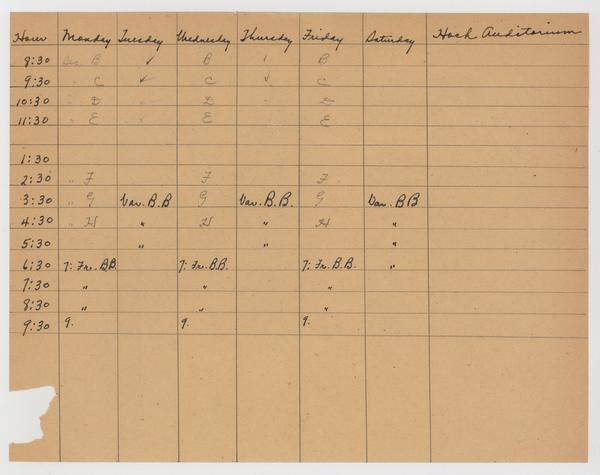 Hour Monday Tuesday Wednesday Thursday Friday Saturday Hoch Auditorium
8:30 B ✓ B B
9:30 " C ✓ C ✓ C
10:30 " D " D D
11:30 " E E E
1:30
2:30 " F F F
3:30 " G Var. B.B G Var. B.B. G Var. BB
4:30 " H " H " H "
5:30 " " "
6:30 7: Fr. B.B. 7: Fr. B.B. 7: Fr. B.B. "
7:30 " " "
8:30 " " "
9:30 9. 9. 9.